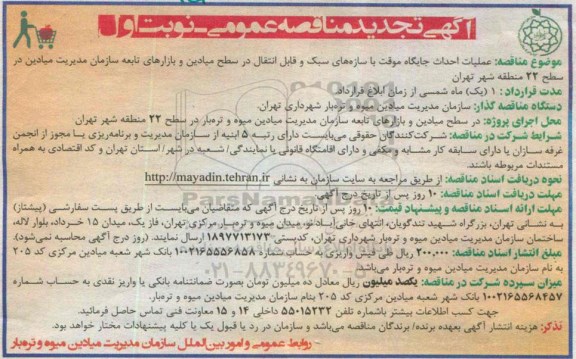 آگهی تجدید مناقصه عمومی - نوبت اول
موضوع مناقصه: عملیات احداث جایگاه موقت با سازه‌های سبک و قابل انتقال در سطح میادین و بازارهای تابعه سازمان مدیریت میادین در
سطح ۲۲ منطقه شهر تهران
مدت قرارداد: ۱ (یک) ماه شمسی از زمان ابلاغ قرارداد.
دستگاه مناقصه گذار: سازمان مدیریت میادین میوه و تره‌بار شهرداری تهران.
محل اجرای پروژه: در سطح میادین و بازارهای تابعه سازمان مدیریت میادین میوه و تره‌بار در سطح ۲۲ منطقه شهر تهران
شرایط شرکت در مناقصه: شرکت‌کنندگان حقوقی می‌بایست دارای رتبه ۵ ابنیه از سازمان مدیریت و برنامه‌ریزی یا مجوز از انجمن
غرفه سازان یا دارای سابقه کار مشابه و مکفی و دارای اقامتگاه قانونی یا نمایندگی/ شعبه در شهر/ استان تهران و کد اقتصادی به همراه
مستندات مربوطه باشند.
نحوه دریافت اسناد مناقصه: از طریق مراجعه به سایت سازمان به نشانی http://mayadin.tehran.ir
مهلت دریافت اسناد مناقصه: ۱۰ روز پس از تاریخ درج آگهی
مهلت ارائه اسناد مناقصه و پیشنهاد قیمت: ۱۰ روز پس از تاریخ درج آگهی که متقاضیان می‌بایست از طریق پست سفارشی (پیشتاز)
به نشانی تهران، بزرگراه شهید تندگویان، انتهای خانی‌آباد نو، میدان میوه و تره‌بار مرکزی تهران، فاز یک، میدان ۱۵ خرداد، بلوار لاله،
ساختمان سازمان مدیریت میادین میوه و تره‌بار شهرداری تهران، کدپستی ۱۸۹۷۷۱۳۱۷۳ ارسال نمایند. (روز درج آگهی محاسبه نمی‌شود).
مبلغ انتشار اسناد مناقصه: ۲۰۰.۰۰۰ ریال طی فیش واریزی به حساب شماره ۱۰۰۲۱۶۵۵۵۶۸۵۸ بانک شهر شعبه میادین مرکزی کد ۲۰۵
به نام سازمان مدیریت میادین میوه و تره‌بار می‌باشد.
میزان سپرده شرکت در مناقصه: یکصد میلیون ریال معادل ده میلیون تومان بصورت ضمانتنامه بانکی یا واریز نقدی به حساب شماره
۱۰۰۲۱۶۵۵۶۸۴۵۷ بانک شهر شعبه میادین مرکزی کد ۲۰۵ بنام سازمان مدیریت میادین میوه و تره‌بار.
جهت کسب اطلاعات بیشتر باشماره تلفن ۵۵۰۱۵۲۳۲ داخلی ۱۴ و ۱۵ معاونت فنی تماس حاصل فرمائید.
تذکر: هزینه انتشار آگهی بعهده برنده/ برندگان مناقصه می‌باشد و سازمان در رد یا قبول یک یا کلیه پیشنهادات مختار خواهد بود.
- روابط عمومی و امور بین‌الملل سازمان مدیریت میادین میوه و تره‌بار
۰۲۱-۸۸۳۴۹۶۷۰-۵